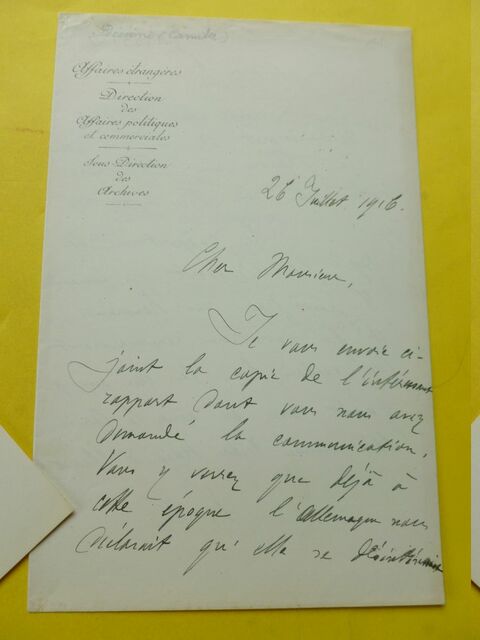 (Camille)
Affaires étrangères
Direction
des
Affaires politiques
et commerciales
Sous-Direction
des
Archives
26 Juillet 1916.
Cher Monsieur,
Je vous envoie ci-
joint la copie de l'intéressant
rapport dont vous nous avez
demandé la communication.
Vous y verrez que déjà à
cette époque l'Allemagne nous
déclarait qu'elle se désintéressait